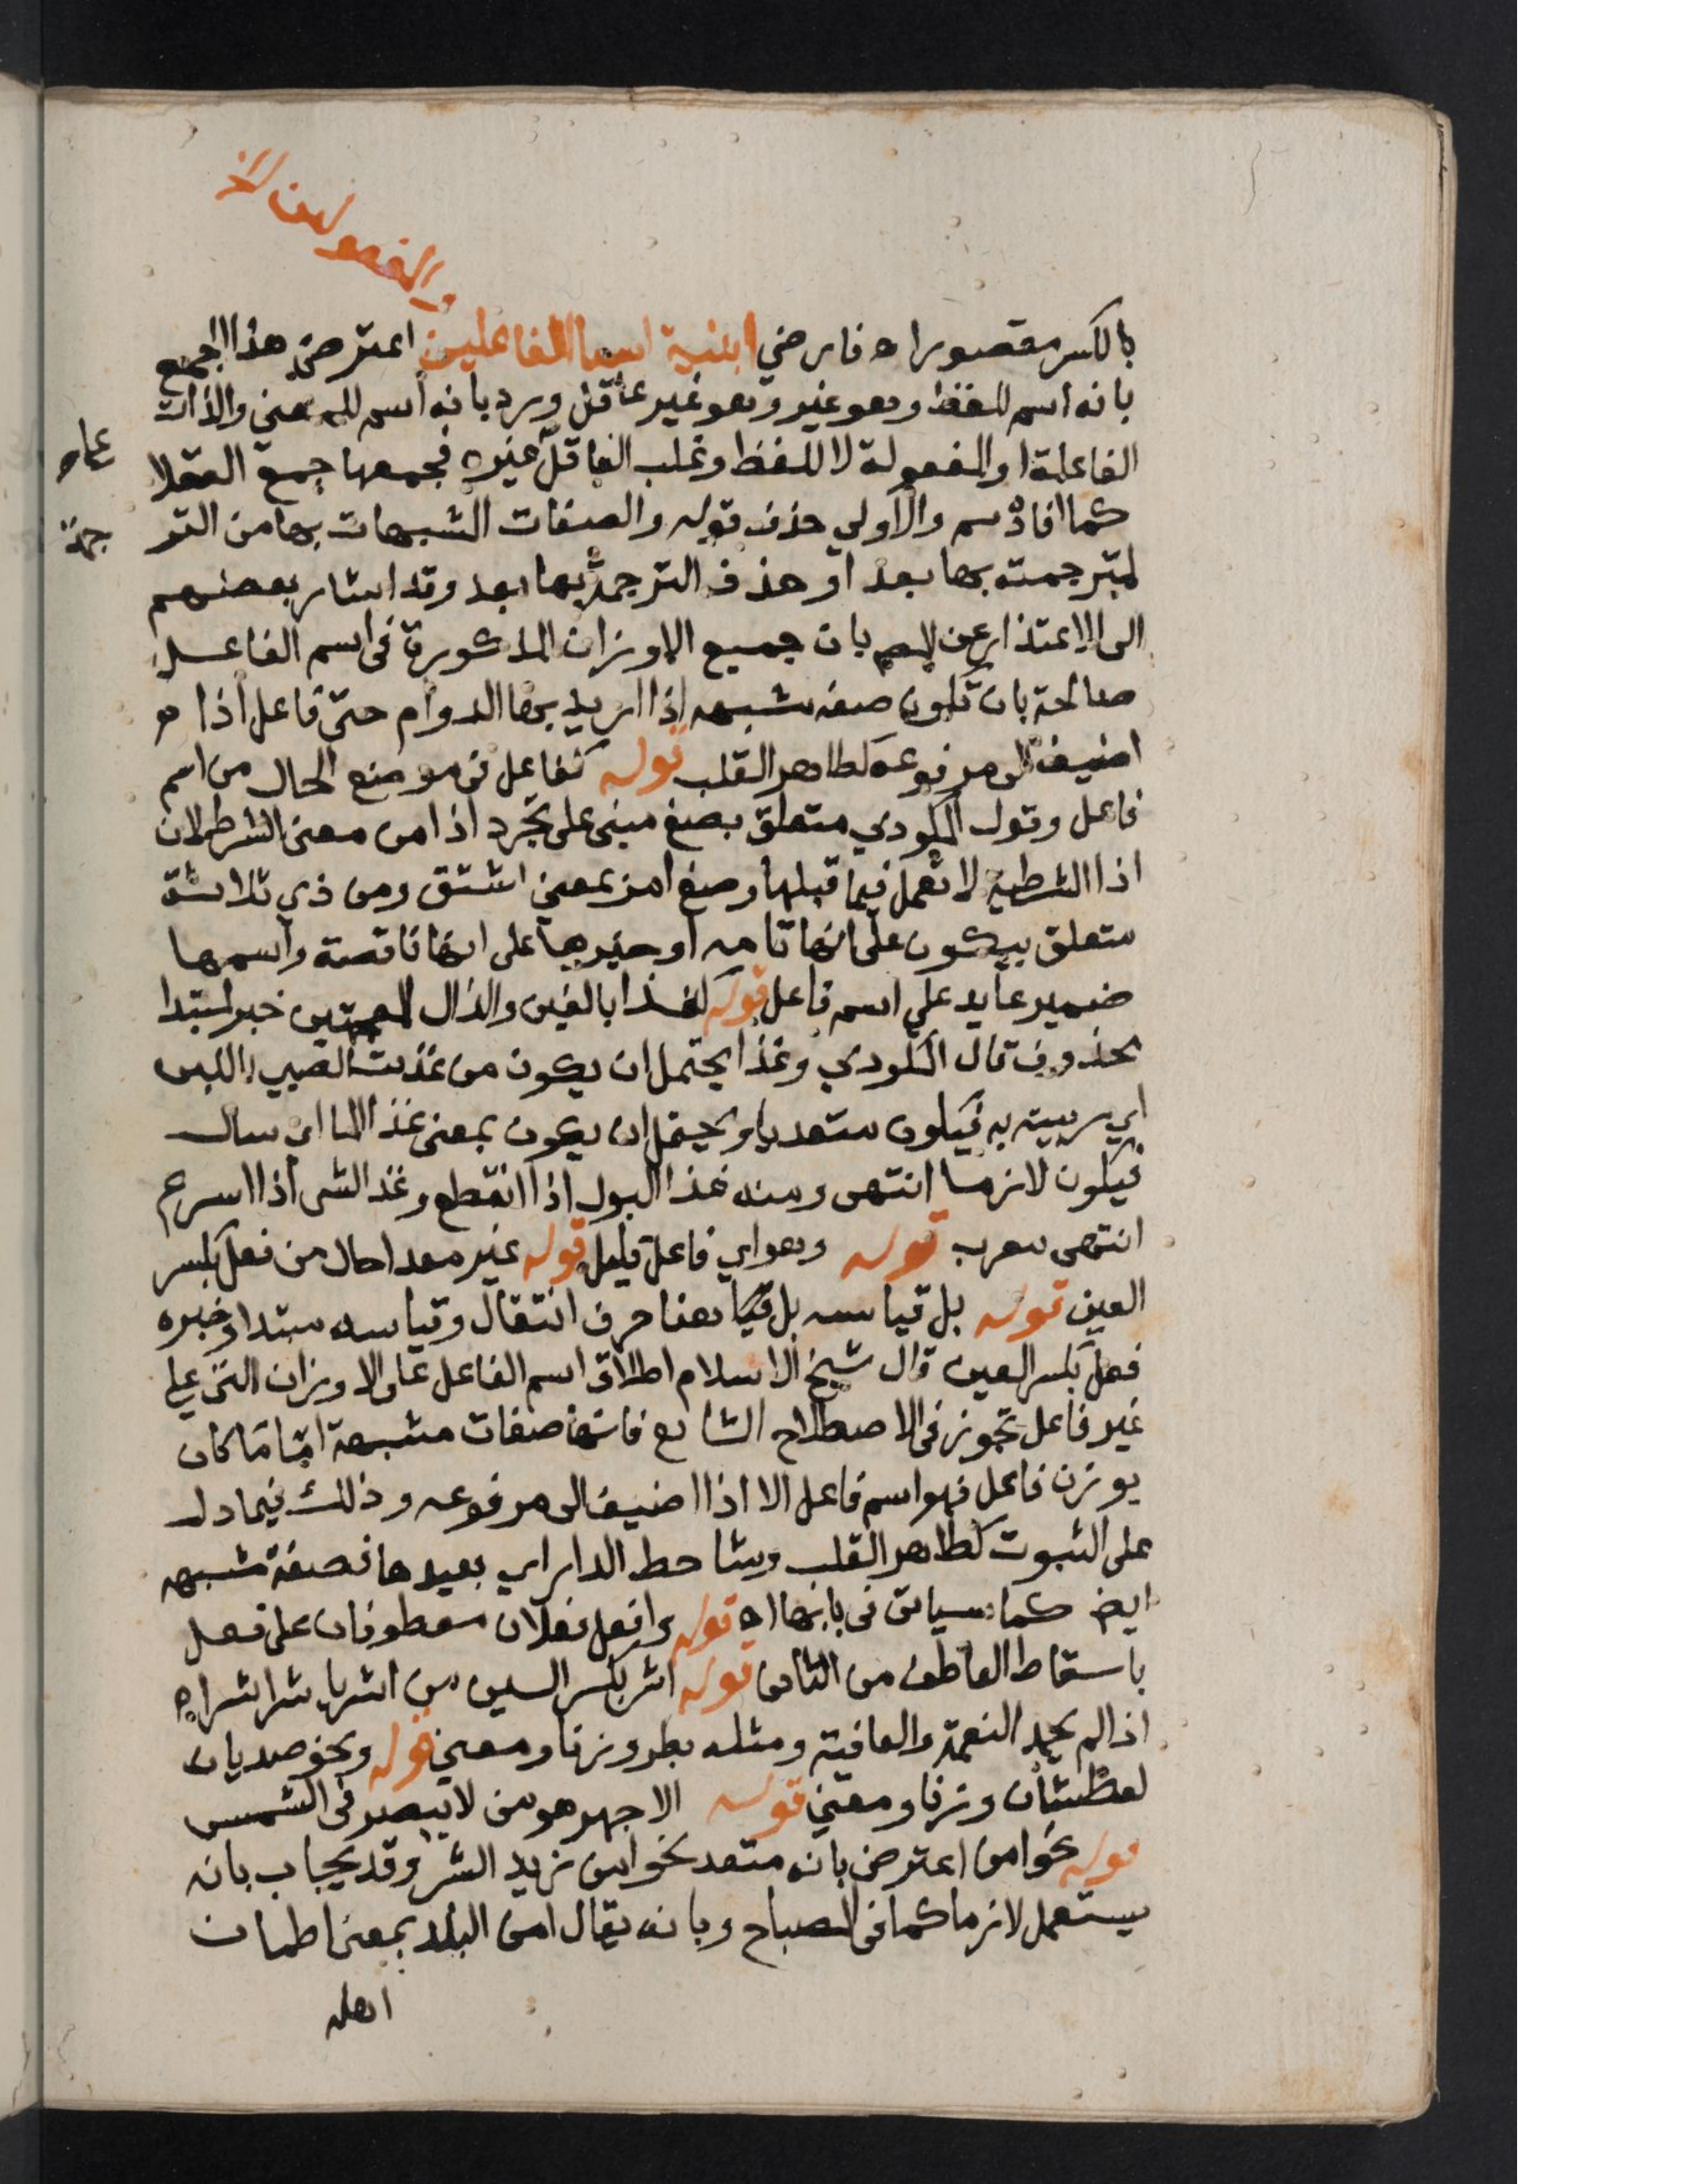 والمفعولين الخ
بالكسر مقصورا اه فارضي ابنية اسما الفاعلين اعترض هذا الجمع
بانه اسم للفظ وهو غير وهو غير عاقل ورد بانه اسم للمعنى والذات
الفاعلة او المفعولة لا للفظ وغلب العاقل غيره فجمعها جمع العقلا
على
كما افاده سم والاولى حذف قوله والصفات المشبهات بها من التر
جمة
لترجمته بها بعد او حذف الترجمة بها بعد وقد اشار بعضهم
الى الاعتذار عن المص بان جميع الاوزان المذكورة في اسم الفاعل
صالحة بان تكون صفة مشبهه اذا اريد بها الدوام حتى فاعل اذا
اضيف الى مرفوعه كطاهر القلب قوله كفاعل في موضع الحال من اسم
فاعل وقول المكودي متعلق بصغ مبني على تجرد اذا من معنى الشرط لان
اذا الشرطية لا تعمل فيما قبلها وصغ امر بمعنى اشتق ومن ذي ثلاثة
متعلق بيكون على انها تامه او خبرها على انها ناقصة واسمها
ضمير عايد على اسم فاعل قوله كغذا بالغين والذال المعجمتين خبر لمبتدا
محذوف قال المكودي وغذا يحتمل ان يكون من غذيت الصبي باللبن
اي ربيته به فيكون متعديا ويحتمل ان يكون بمعنى غذا الما اي سال
فيكون لازما انتهى ومنه غذا البول اذا انقطع وغذا الشى اذا اسرع
انتهى معرب قوله وهو اي فاعل قليل قوله غير معدا حال من فعل بكسر
العين قوله بل قياسه بل هنا حرف انتقال وقياسه مبتدا وخبره
فعل بكسر العين قال شيخ الاسلام اطلاق اسم الفاعل على الاوزان التي على
غير فاعل تجوز في الاصطلاح الشايع فانها صفات مشبهة اما ما كان
بوزن فاعل فهو اسم فاعل الا اذا اضيف الى مرفوعه وذلك فيما دل
على الثبوت كطاهر القلب وشاحط الدار اي بعيدها فصفة مشبهه
ايض كما سياتى في بابها اه قوله وافعل فعلان معطوفان على فعل
باسقاط العاطف من الثانى قوله اشر بكسر الشين من اشر ياشر اشرا اه
اذا لم يحمد النعمة والعافية ومثله بطر وزنا ومعنى قوله ونحو صديان
كعطشان وزنا ومعنى قوله الاجهر هو من لا يبصر في الشمس
قوله نحو امن اعترض بانه متعد نحو امن زيد الشر وقد يجاب بانه
يستعمل لازما كما في المصباح وبانه يقال امن البلد بمعنى اطمان
اهله